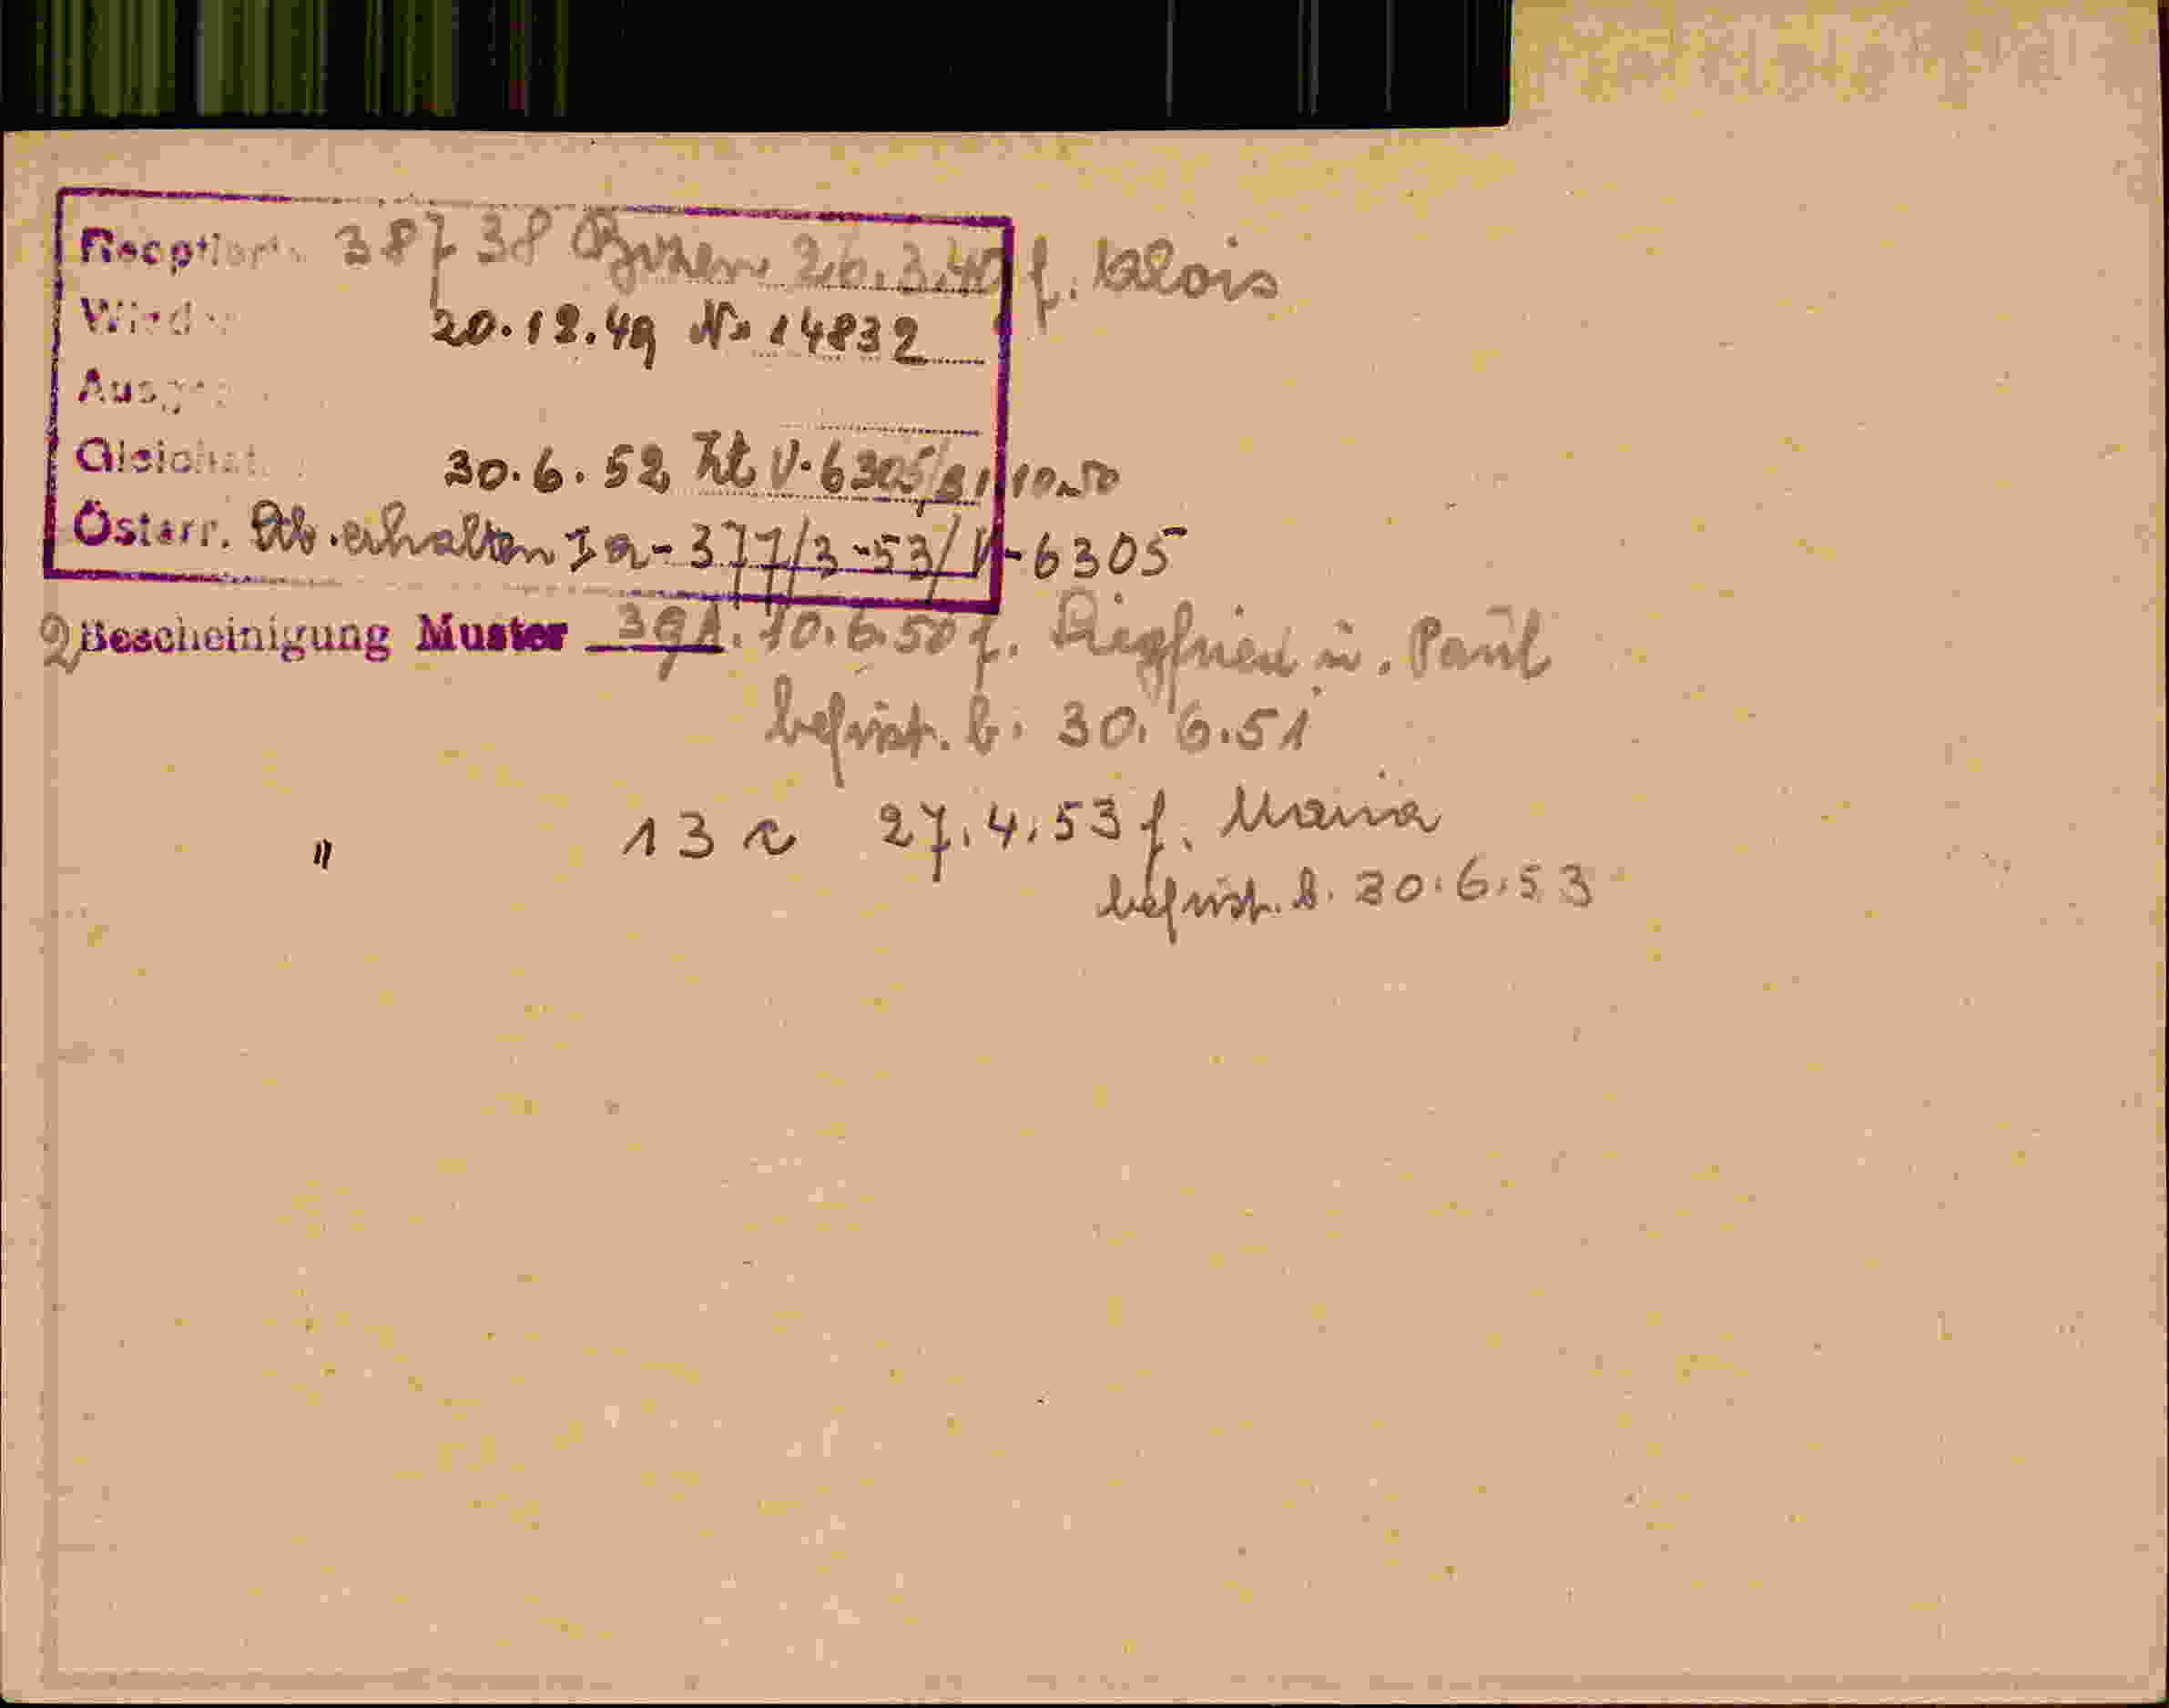 Reoptiert: 38738 Bozen 26.3.40 f. Alois
20.12.49 No 14832
30.6.52 Zl V-6305/3110-50
Österr. Stb. erhalten Ia-377/3-53/V-6305
2 Bescheinigung Muster 39A. 10.6.50 f. Siegfried u. Paul
befrist. b. 30.6.51
" 13 a 27.4.53 f. Maria
befrist. b. 30.6.53